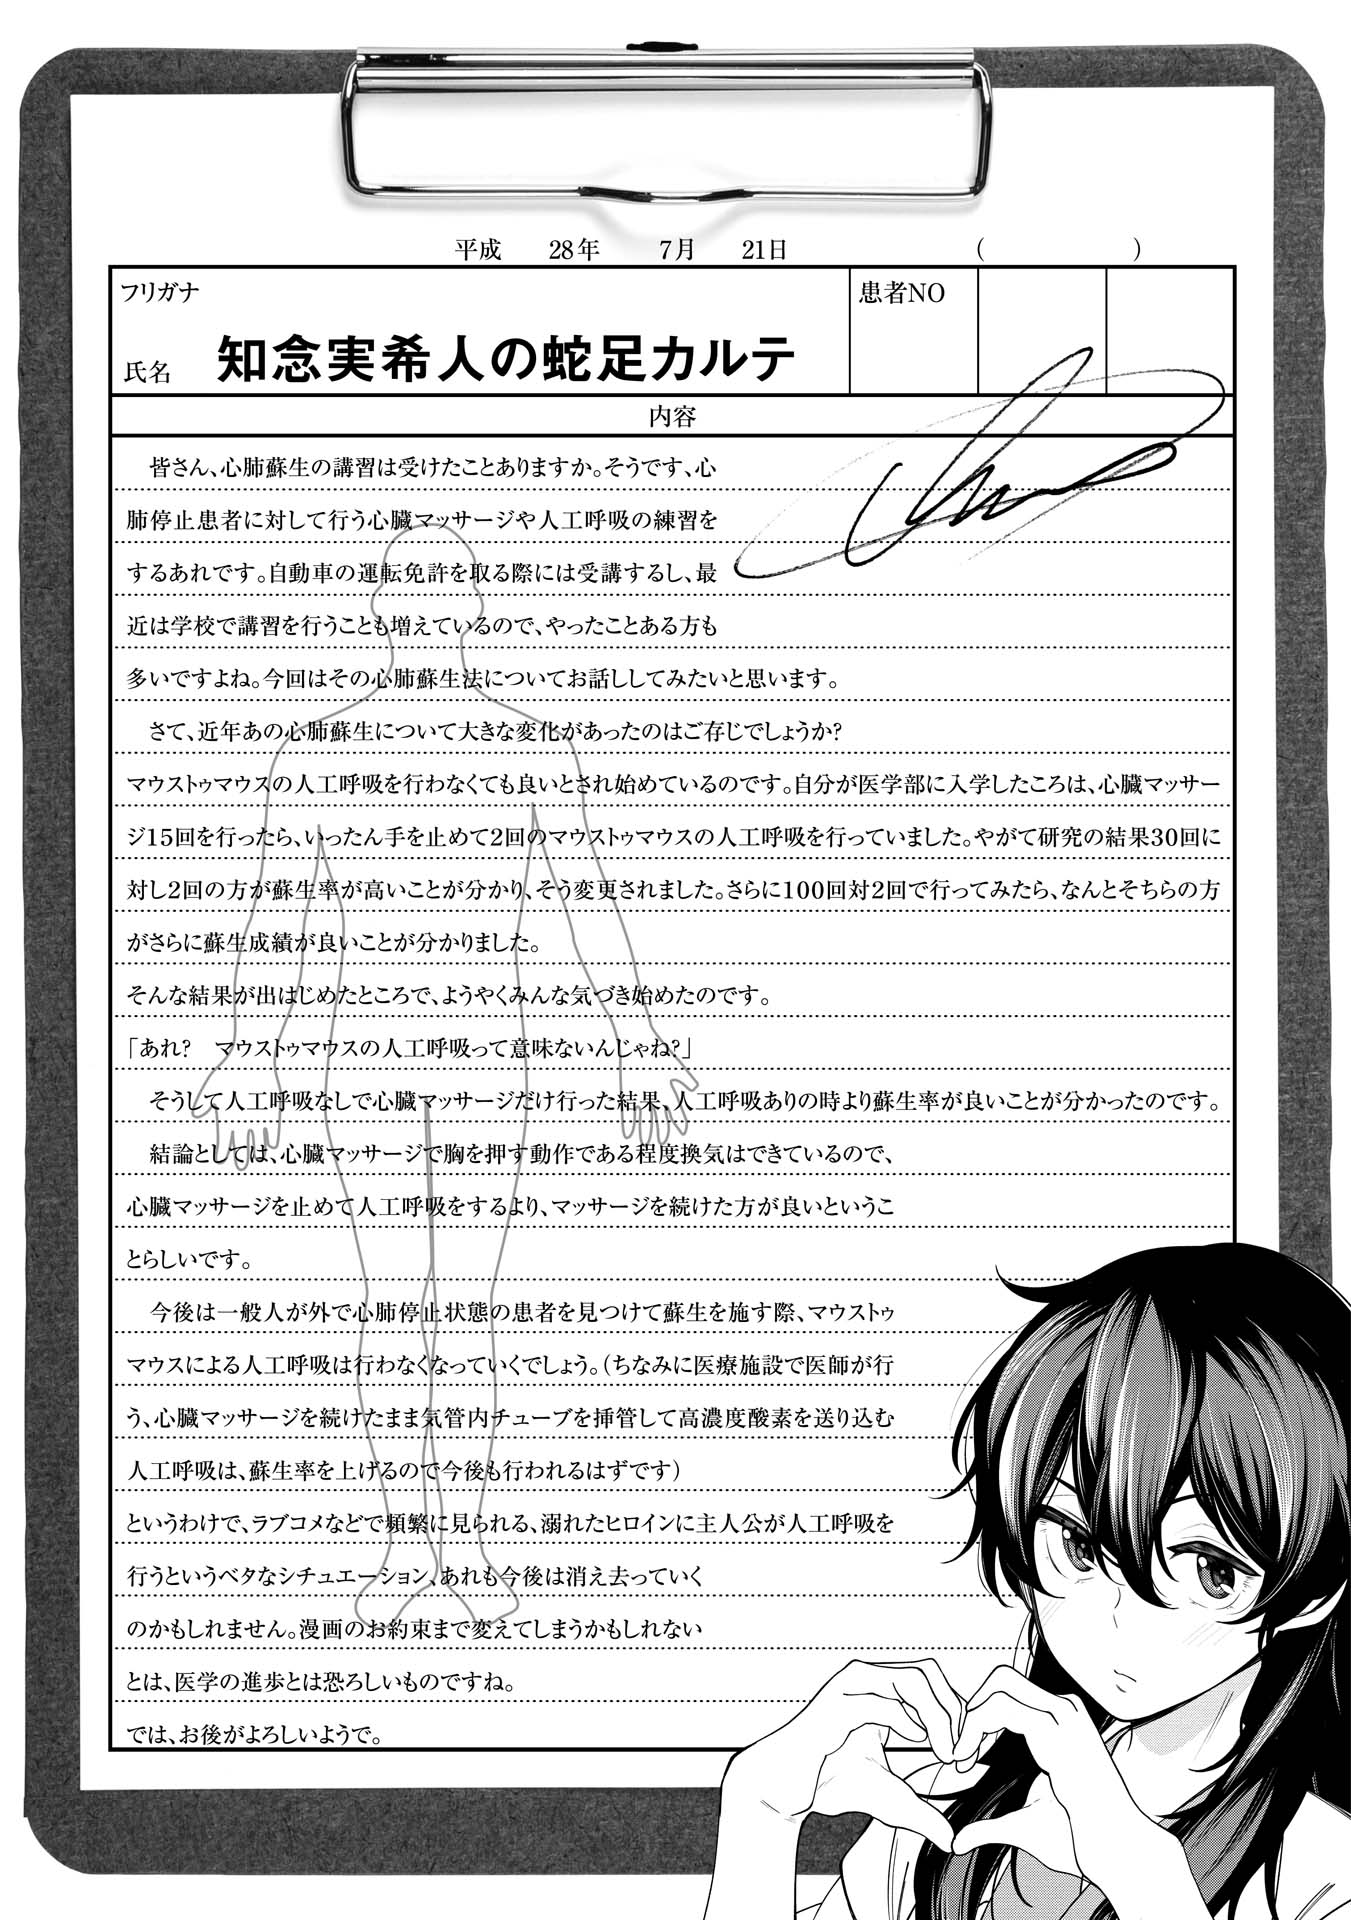 平成 28年 7月 21日 ( )
フリガナ
患者NO
氏名 知念実希人の蛇足カルテ
内容
皆さん、心肺蘇生の講習は受けたことありますか。そうです、心
肺停止患者に対して行う心臓マッサージや人工呼吸の練習を
するあれです。自動車の運転免許を取る際には受講するし、最
近は学校で講習を行うことも増えているので、やったことある方も
多いですよね。今回はその心肺蘇生法についてお話ししてみたいと思います。
さて、近年あの心肺蘇生について大きな変化があったのはご存じでしょうか?
マウストゥマウスの人工呼吸を行わなくても良いとされ始めているのです。自分が医学部に入学したころは、心臓マッサー
ジ15回を行ったら、いったん手を止めて2回のマウストゥマウスの人工呼吸を行っていました。やがて研究の結果30回に
対し2回の方が蘇生率が高いことが分かり、そう変更されました。さらに100回対2回で行ってみたら、なんとそちらの方
がさらに蘇生成績が良いことが分かりました。
そんな結果が出はじめたところで、ようやくみんな気づき始めたのです。
「あれ?　マウストゥマウスの人工呼吸って意味ないんじゃね?」
そうして人工呼吸なしで心臓マッサージだけ行った結果、人工呼吸ありの時より蘇生率が良いことが分かったのです。
結論としては、心臓マッサージで胸を押す動作である程度換気はできているので、
心臓マッサージを止めて人工呼吸をするより、マッサージを続けた方が良いというこ
とらしいです。
今後は一般人が外で心肺停止状態の患者を見つけて蘇生を施す際、マウストゥ
マウスによる人工呼吸は行わなくなっていくでしょう。(ちなみに医療施設で医師が行
う、心臓マッサージを続けたまま気管内チューブを挿管して高濃度酸素を送り込む
人工呼吸は、蘇生率を上げるので今後も行われるはずです)
というわけで、ラブコメなどで頻繁に見られる、溺れたヒロインに主人公が人工呼吸を
行うというベタなシチュエーション、あれも今後は消え去っていく
のかもしれません。漫画のお約束まで変えてしまうかもしれない
とは、医学の進歩とは恐ろしいものですね。
では、お後がよろしいようで。